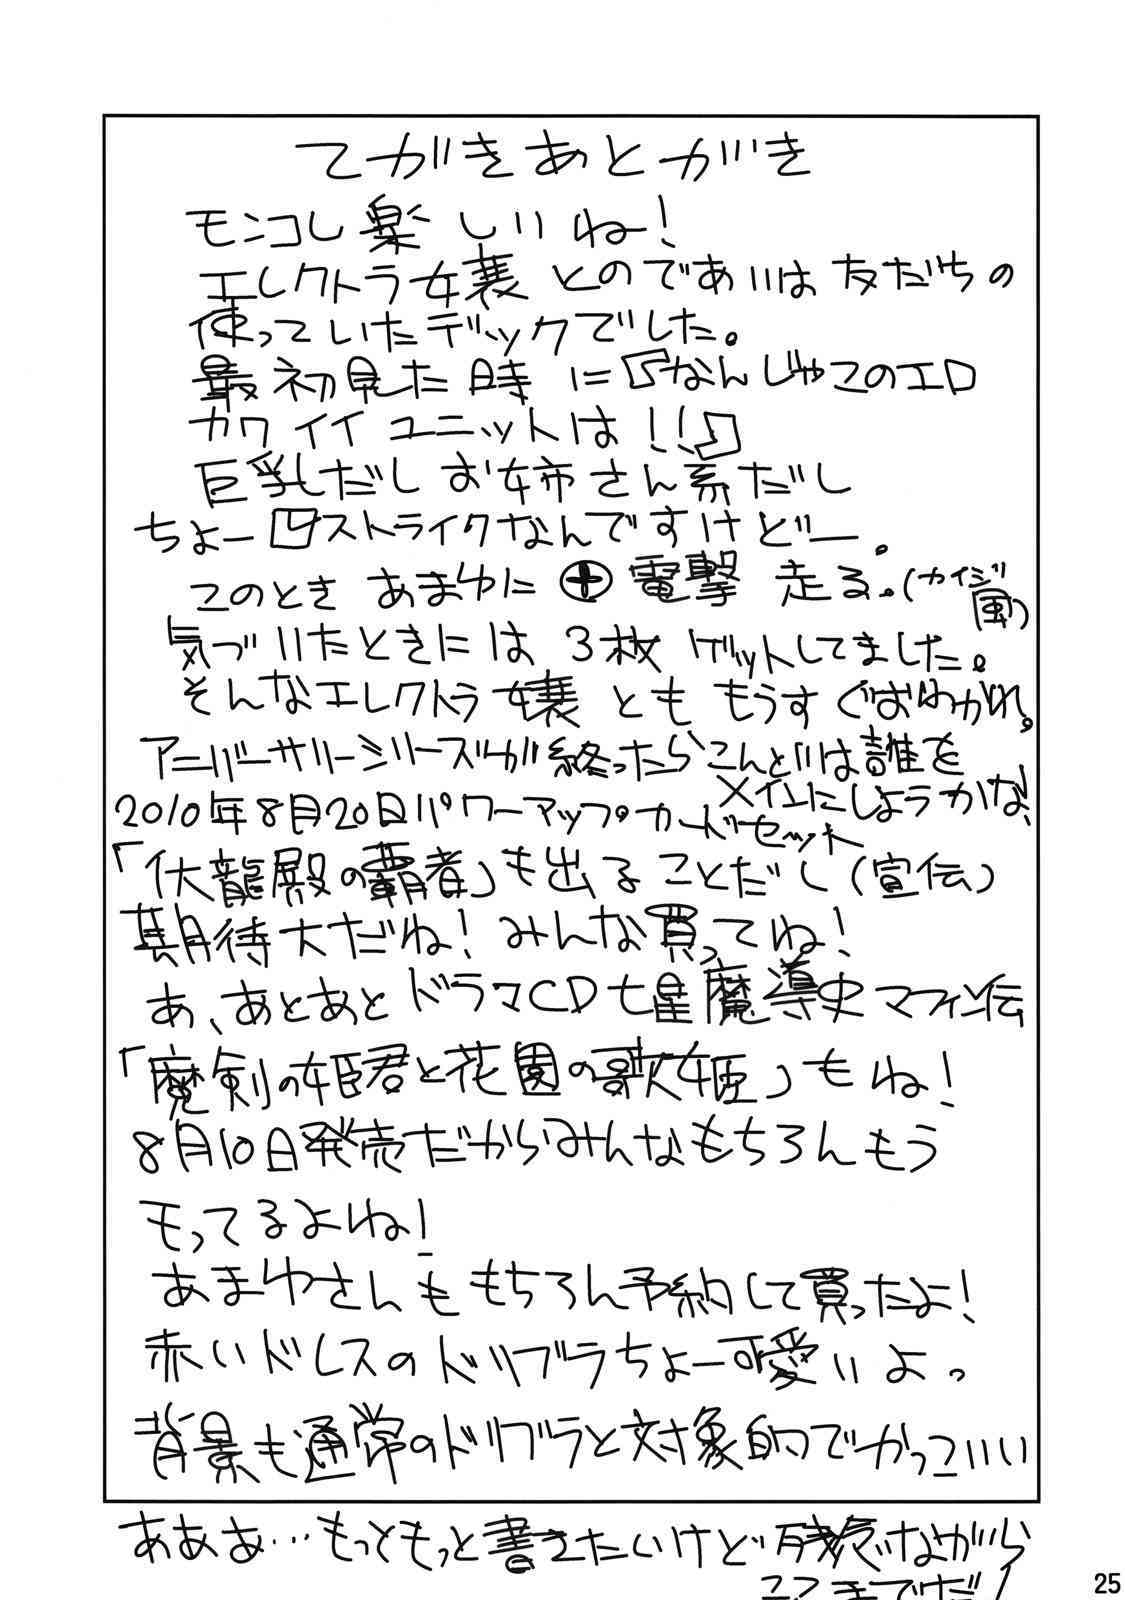 てがきあとがき
モンコレ楽しいね！
エレクトラ女襄とのであいは友だちの
使っていたデックでした。
最初見た時に『なんじゃこのエロ
カワイイユニットは！！』
巨乳だしお姉さん系だし
ちょーストライクなんですけどー。
このときあまゆに電撃走る。（カイジ風）
気づいたときには3枚ゲットしてました。
そんなエレクトラ嬢とももうすぐおわかれ。
アニバーサリーシリーズが終ったらこんどは誰を
メインにしようかな！
2010年8月20日パワーアップ・カードセット
「伏龍殿の覇者」も出ることだし（宣伝）
期待大だね！みんな買ってね！
あ、あとあとドラマCD七星魔導史マフィン伝
「魔剣の姫君と花園の歌姫」もね！
8月10日発売だからみんなもちろんもう
モってるよね！
あまゆさんももちろん予約して買ったよ！
赤いドレスのドリブラちょー可愛いよっ
背景も通常のドリブラと対象的でかっこいい
あああ…もっともっと書きたいけど残念ながら
ここまでだ！
25